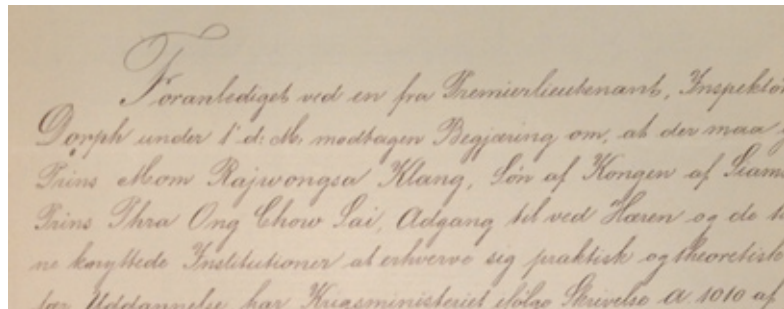 Foranlediget ved en fra Premierlieutenant, Inspektør
Dorph under 1' d: M: modtagen Begjæring om, at der maa
Prins Mom Rajwongsa Klang, Søn af Kongen af Siams
Prins Phra Ong Chow Sai, Adgang til ved Hæren og de
ne knyttede Institutioner at erhverve sig praktisk og theoretisk
Uddannelse har Krigsministeriet ifølge Skrivelse A. 1010 af